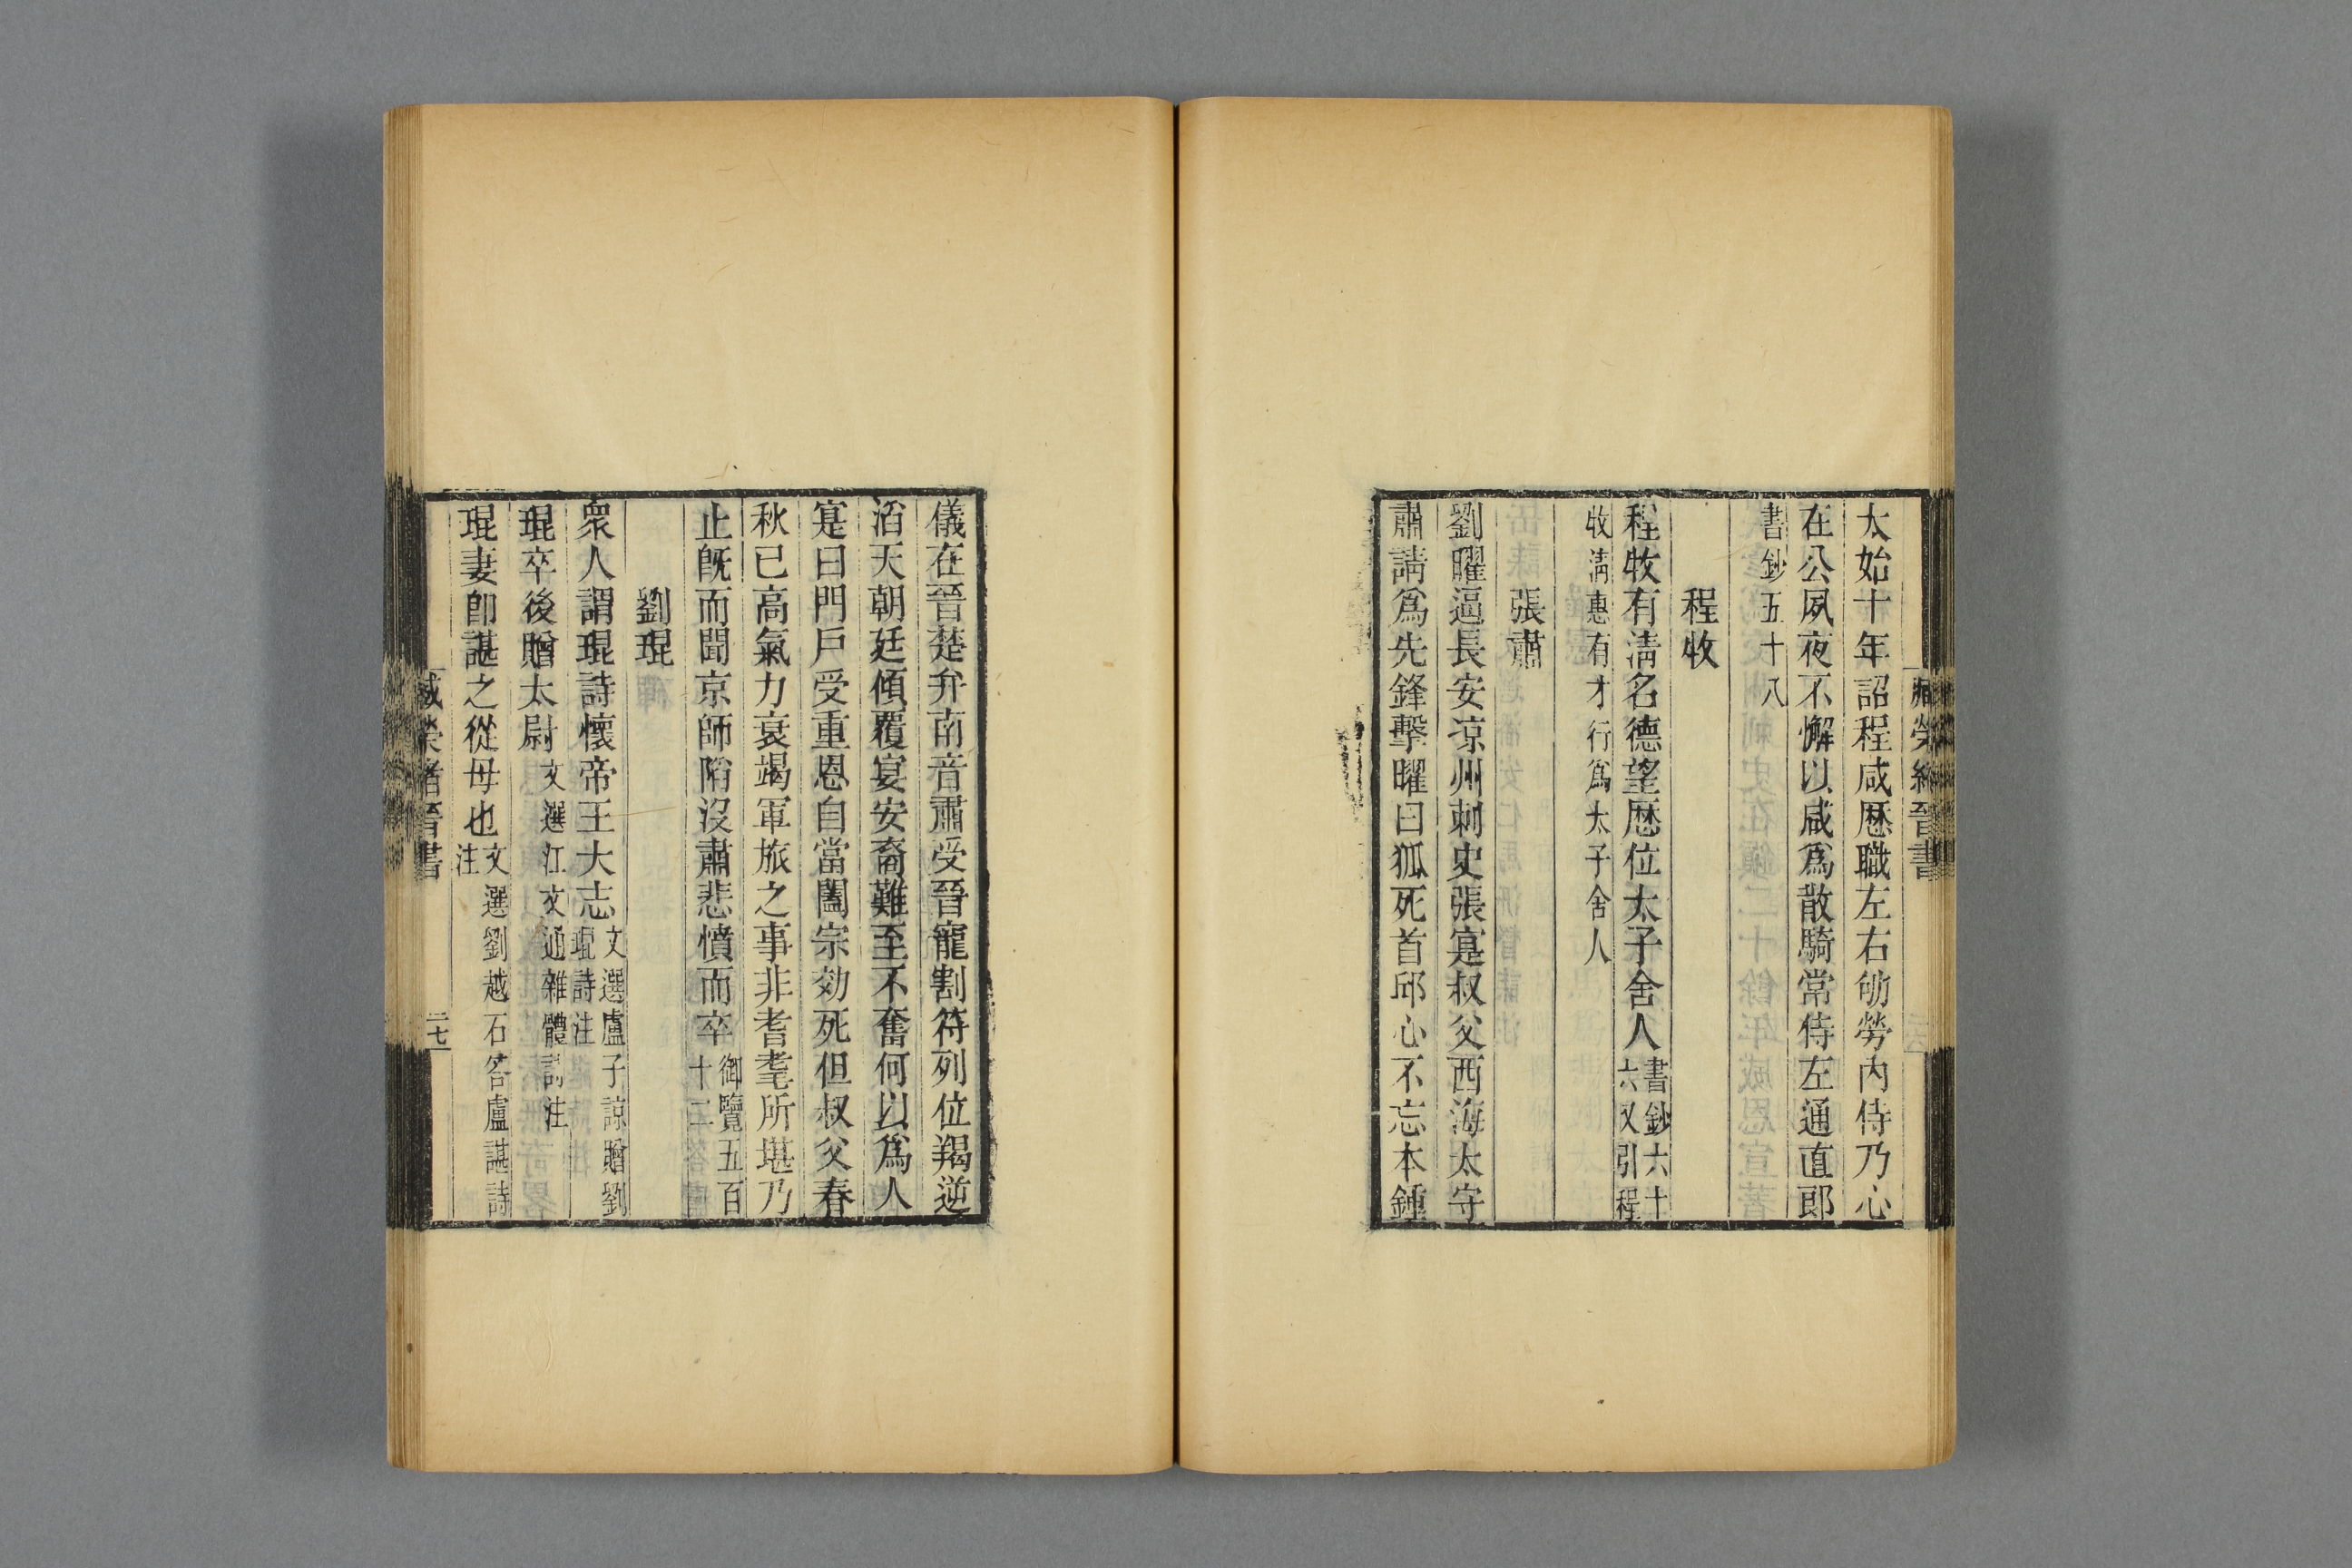 臧榮緒晉書
太始十年詔程咸歷職左右劬勞內侍乃心
在公夙夜不懈以咸爲散騎常侍左通直郎
書鈔五十八
程牧
程牧有淸名德望歷位太子舍人書鈔六十
六又引程
牧淸惠有才行爲太子舍人
張肅
劉曜逼長安凉州刺史張寔叔父西海太守
肅請爲先鋒擊曜曰狐死首邱心不忘本鍾
儀在晉楚弁南音肅受晉寵割符列位羯逆
滔天朝廷傾覆宴安裔難至不奮何以爲人
寔曰門戶受重恩自當闔宗効死但叔父春
秋已高氣力衰竭軍旅之事非耆耄所堪乃
止旣而聞京師陷沒肅悲憤而卒御覽五百
十二
劉琨
衆人謂琨詩懷帝王大志文選盧子諒贈劉
琨詩注
琨卒後贈太尉文選江文通雜體詩注
琨妻卽諶之從母也文選劉越石答盧諶詩
注
臧榮緒晉書
二七